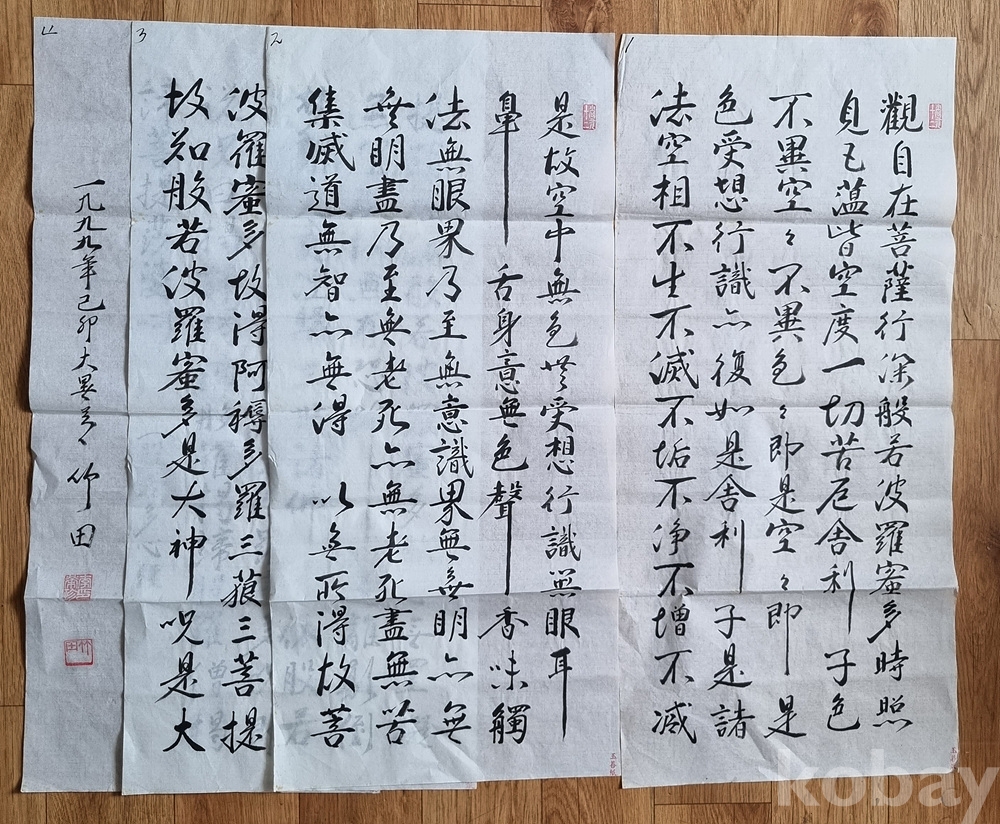 1
觀自在菩薩行深般若波羅蜜多時照
見五蘊皆空度一切苦厄舍利子色
不異空々不異色々即是空々即是
色受想行識亦復如是舍利子是諸
法空相不生不滅不垢不净不增不減
2
是故空中無色無受想行識無眼耳
鼻舌身意無色聲香味觸
法無眼界乃至無意識界無無明亦無
無明盡乃至無老死亦無老死盡無苦
集滅道無智亦無得 以無所得故菩
3
波羅蜜多故得阿耨多羅三藐三菩提
故知般若波羅蜜多是大神呪是大
4
一九九九年己卯大暑 竹田
竹田
kobay